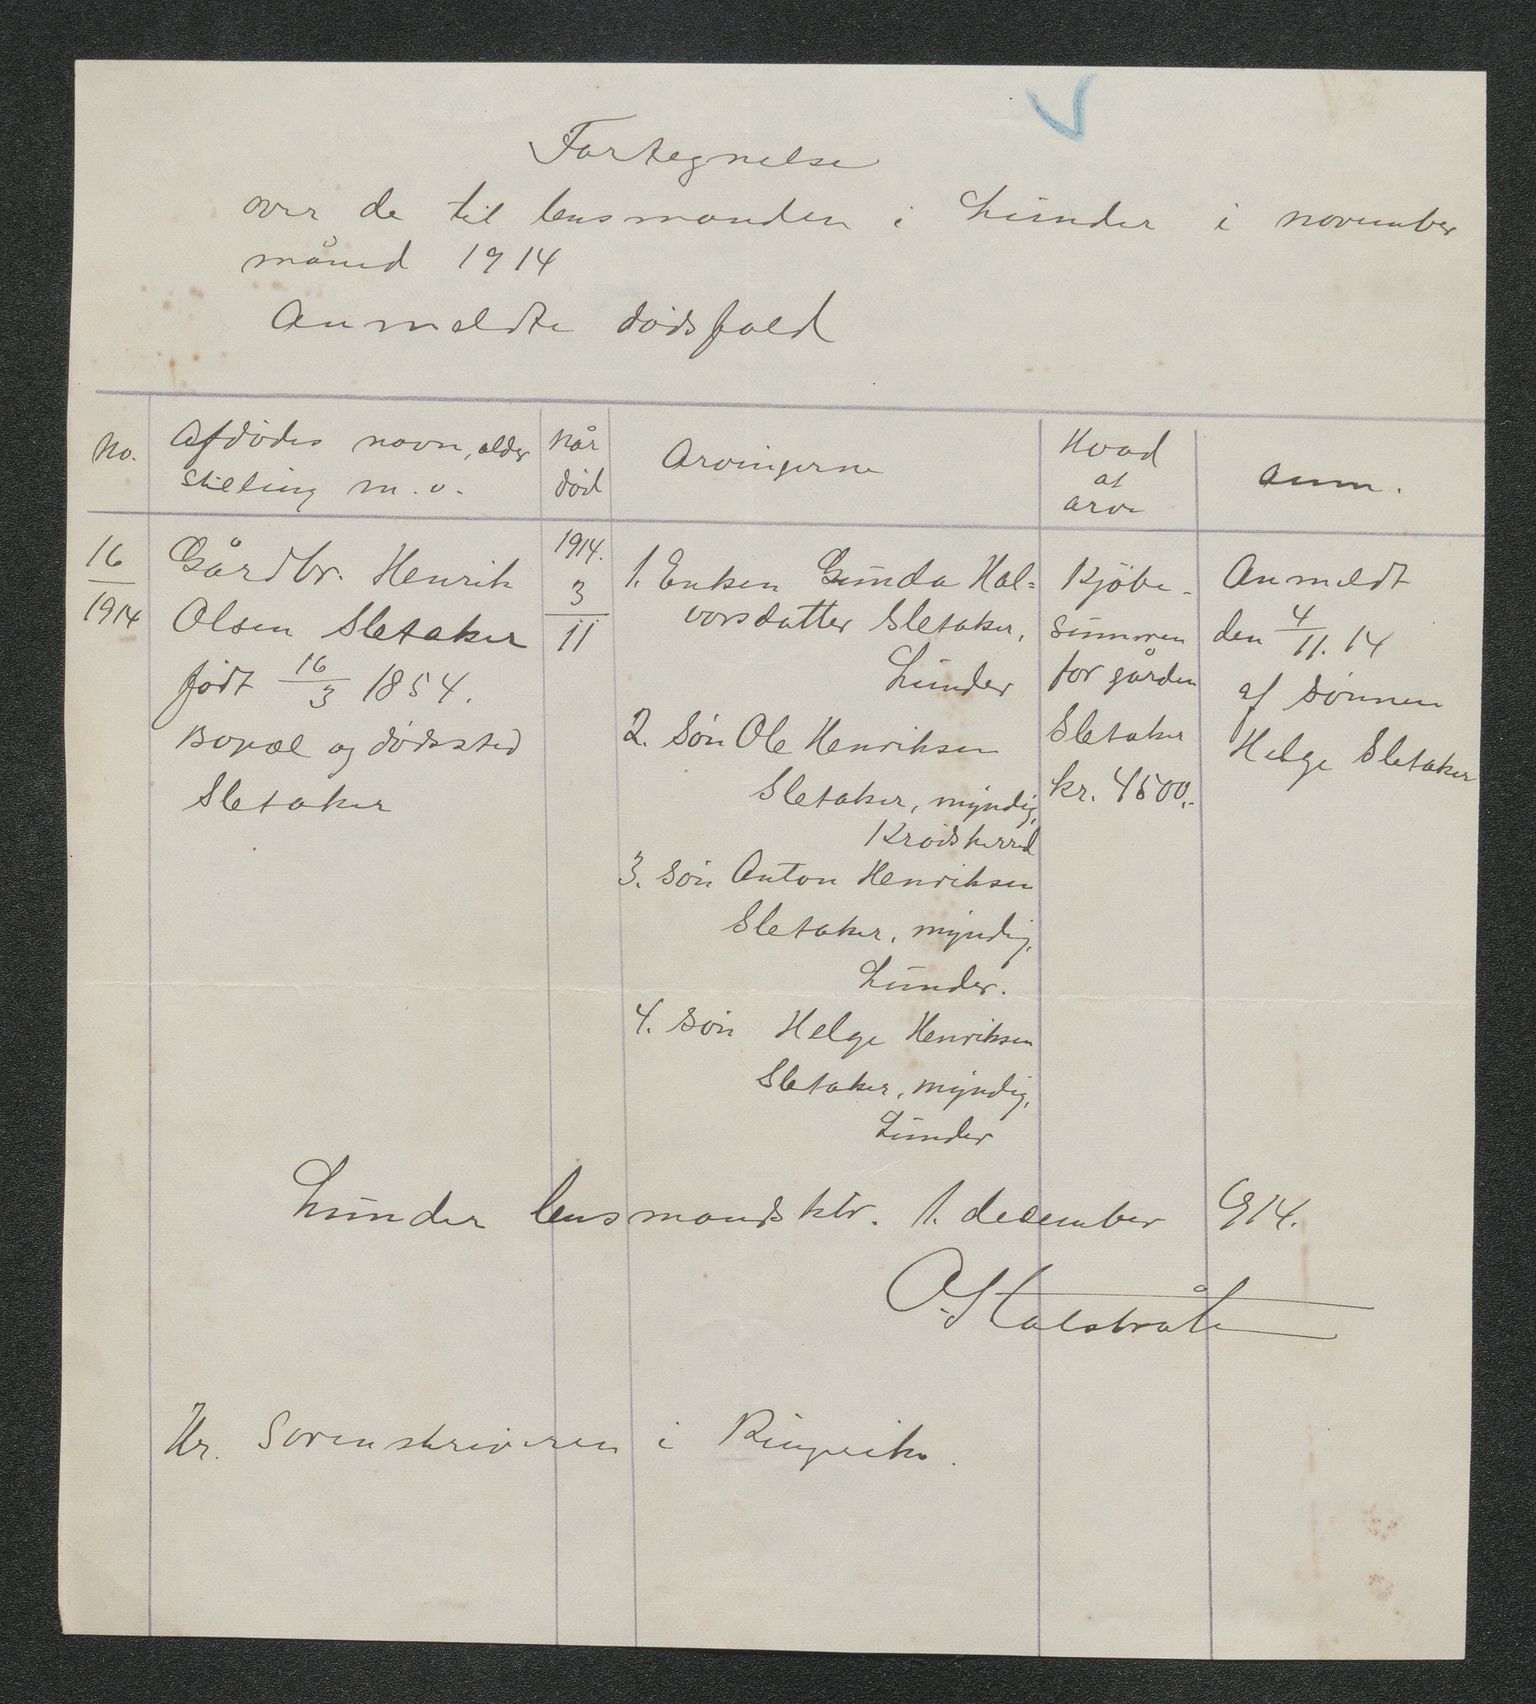 Fortegnelse
over de til lensmanden i Lunder i november
måned 1914
Anmeldte dødsfald
No.
Afdødes navn, alder
stilling m.v.
Når
død
Arvingerne
Hvad
at
arve
Anm.
16
1914
Gårdbr. Henrik
Olsen Sletaker
født 16/3 1854.
Bopæl og dødssted
Sletaker
1914.
3
11
1. Enken Gunda Hal=
vorsdatter Sletaker,
Lunder
2. Søn Ole Henriksen
Sletaker, myndig,
Krødsherred
3. Søn Anton Henriksen
Sletaker, myndig,
Lunder.
4. Søn Helge Henriksen
Sletaker, myndig,
Lunder
Kjøbe-
summen
for gården
Sletaker
kr. 4500,-
Anmeldt
den 4/11. 14
af sønnen
Helge Sletaker
Lunder lensmandsktr. 1. december 1914.
Hr. Sorenskriveren i Ringerike.